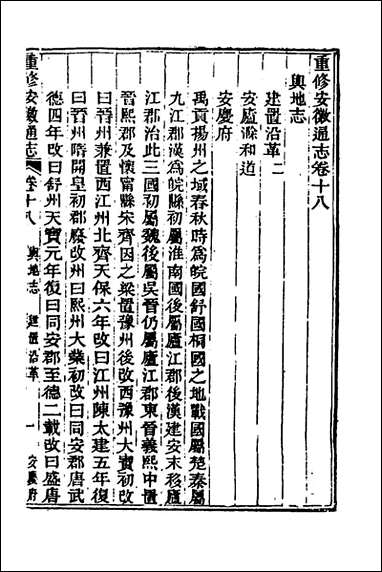 重修安徽通志卷十八
輿地志
建置沿革二
安廬滁和道
安慶府
禹貢揚州之域春秋時爲皖國舒國桐國之地戰國屬楚秦屬
九江郡漢爲皖縣初屬淮南國後屬廬江郡後漢建安末移廬
江郡治此三國初屬魏後屬吳晉仍屬廬江郡東晉義熙中置
晉熙郡及懷甯縣宋齊因之梁置豫州後改西豫州大寶初改
曰晉州兼置西江州北齊天保六年改曰江州陳太建五年復
曰晉州隋開皇初郡廢改州曰熙州大業初改曰同安郡唐武
德四年改曰舒州天寶元年復曰同安郡至德二載改曰盛唐
重修安徽通志
卷十八
輿地志
建置沿革
一
安慶府